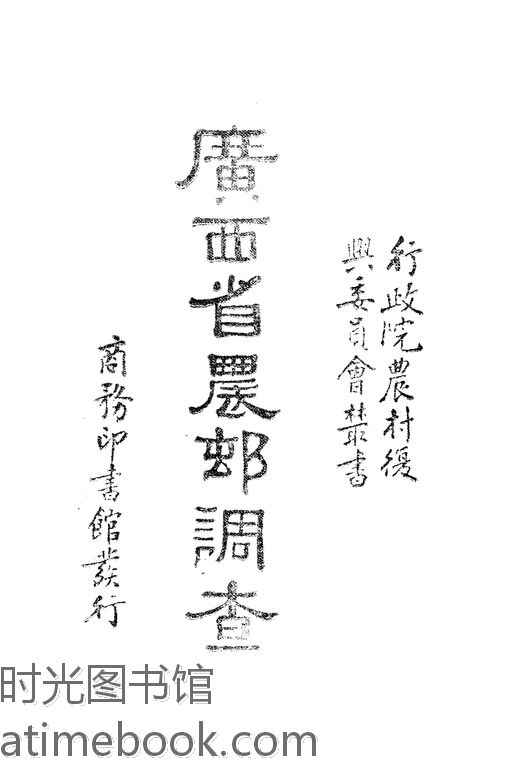 行政院農村復
興委員會叢書
廣西省農邨調查
商務印書館發行
时光图书馆
atimebook.com